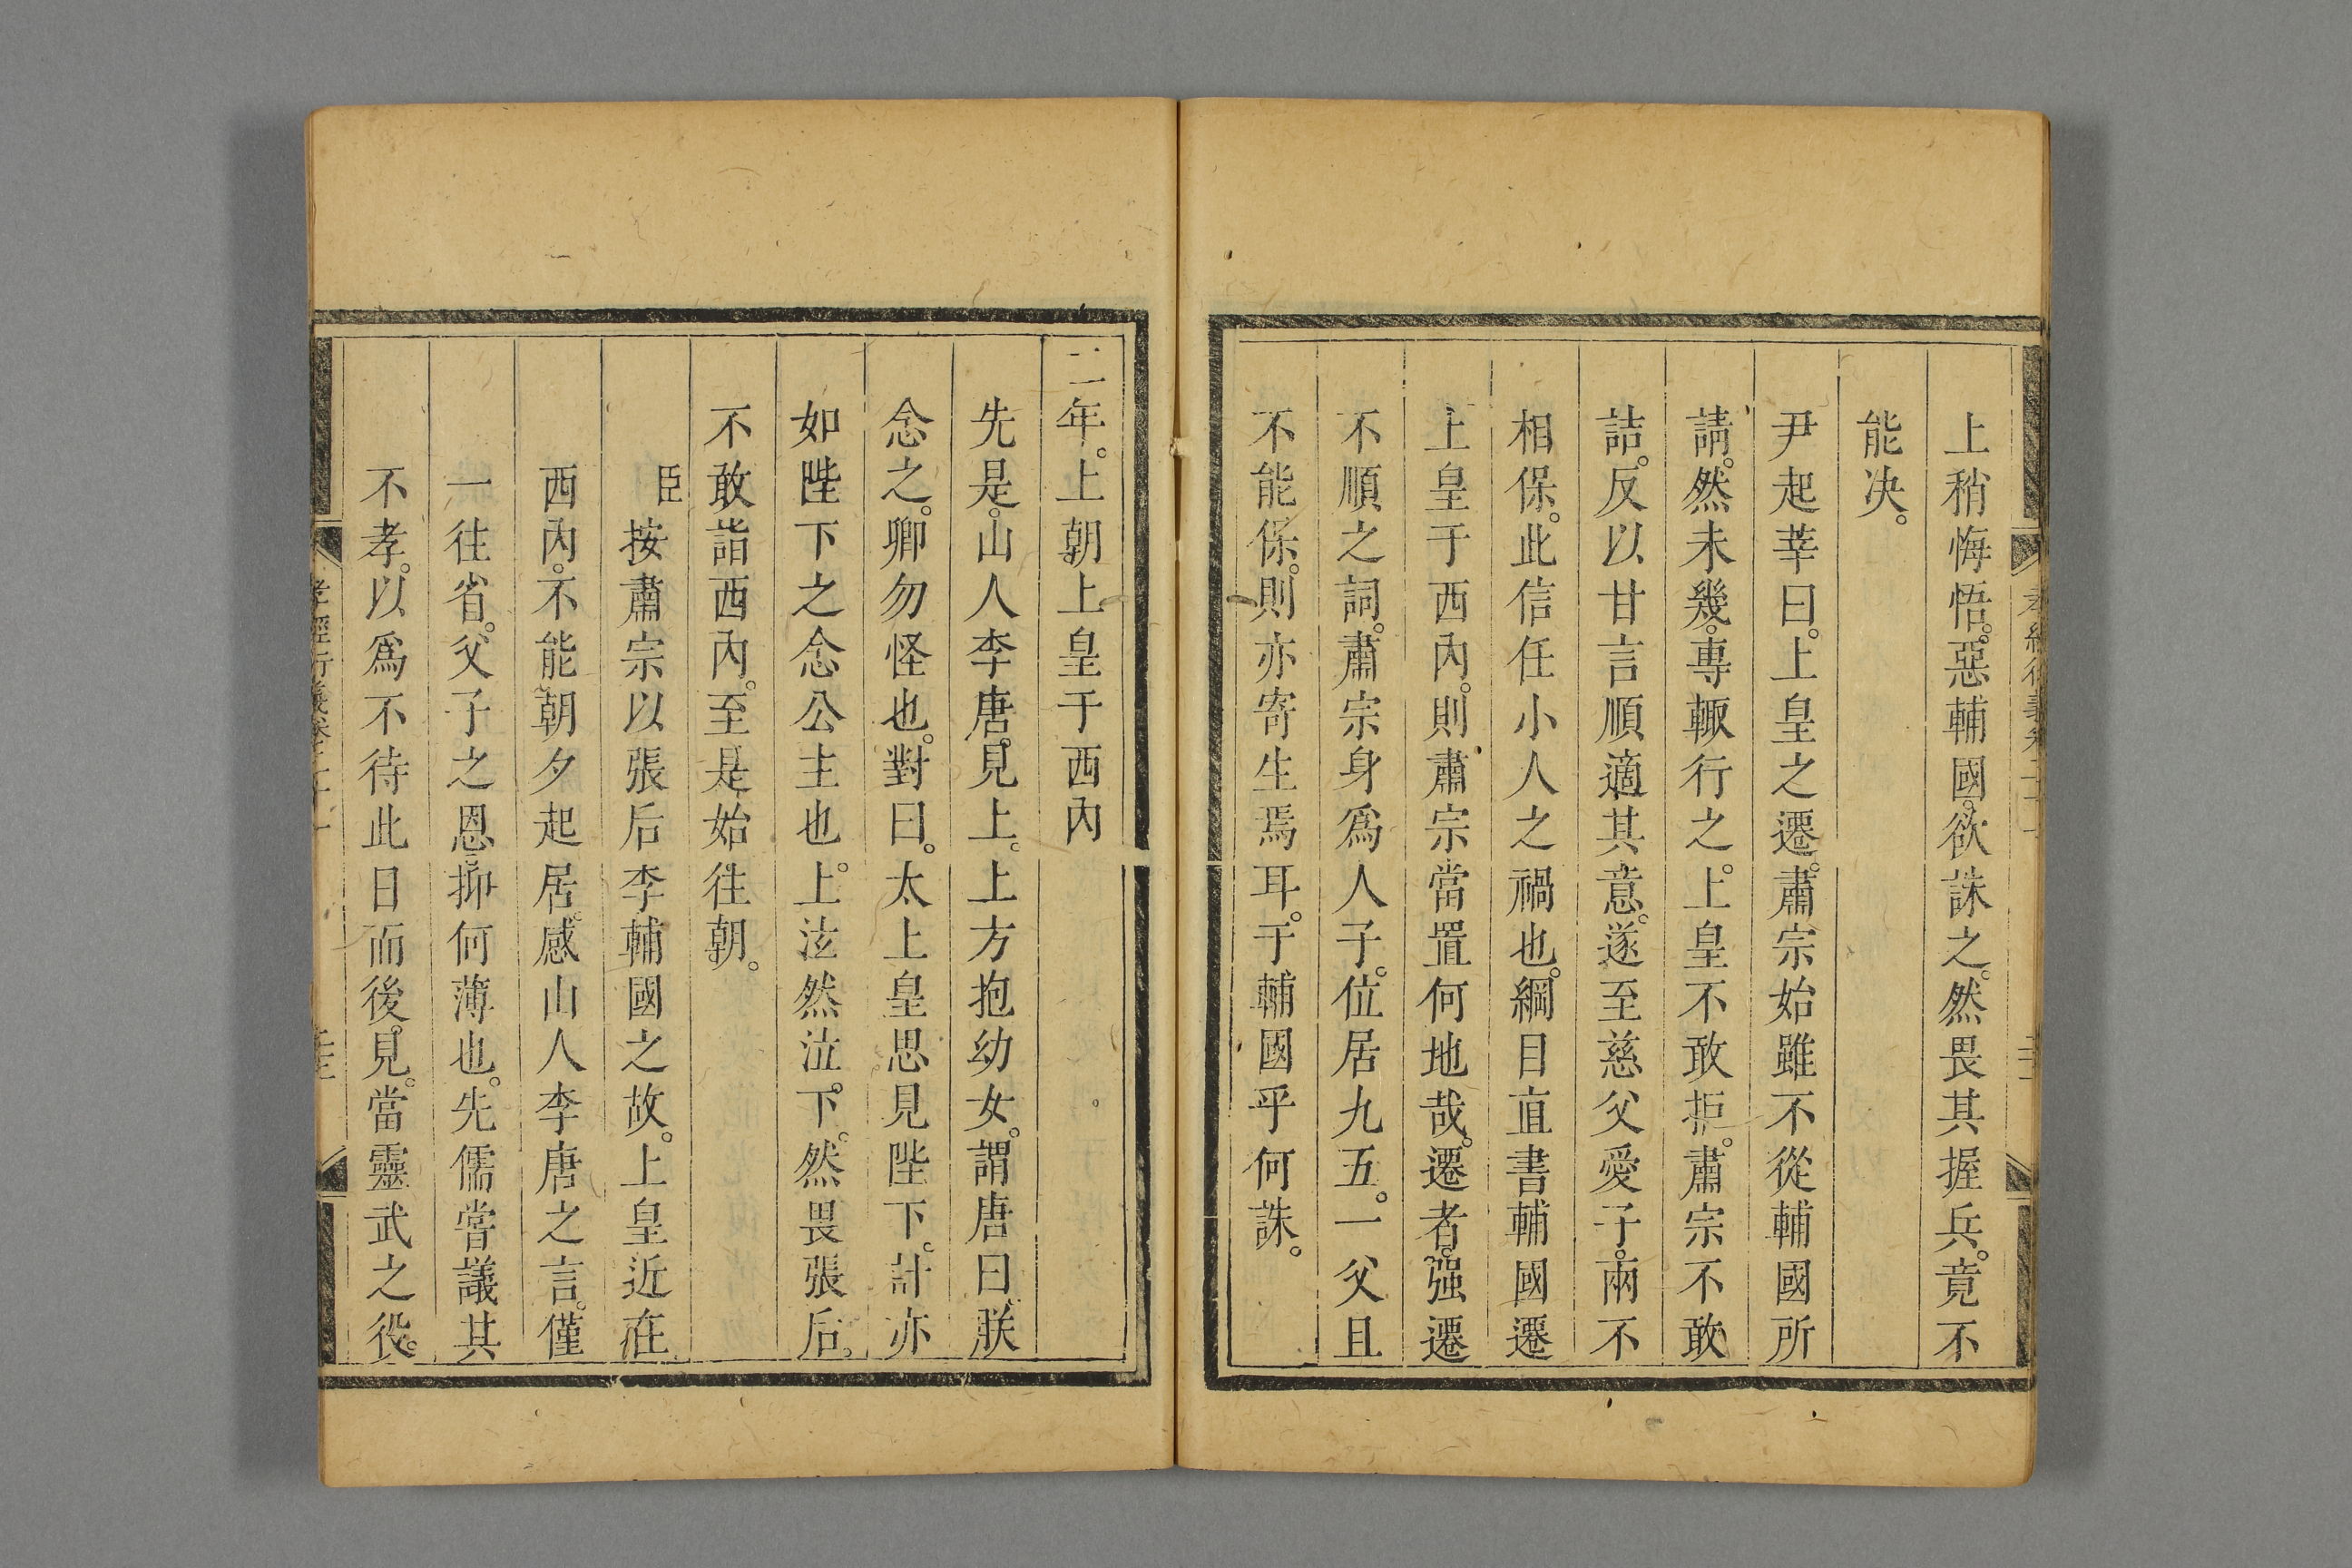 上稍悔悟。惡輔國。欲誅之。然畏其握兵。竟不
能决。
尹起莘曰。上皇之遷。肅宗始雖不從輔國所
請。然未幾。專輙行之。上皇不敢拒。肅宗不敢
詰。反以甘言順適其意。遂至慈父愛子。兩不
相保。此信任小人之禍也。綱目直書輔國遷
上皇于西內。則肅宗當置何地哉。遷者。强遷
不順之詞。肅宗身爲人子。位居九五。一父且
不能保。則亦寄生焉耳。于輔國乎何誅。
二年。上朝上皇于西內
先是。山人李唐。見上。上方抱幼女。謂唐曰。朕
念之。卿勿怪也。對曰。太上皇思見陛下。計亦
如陛下之念公主也。上泫然泣下。然畏張后。
不敢詣西內。至是始往朝。
臣按肅宗以張后李輔國之故。上皇近在
西內。不能朝夕起居。感山人李唐之言。僅
一往省。父子之恩抑何薄也。先儒嘗議其
不孝。以爲不待此日而後見。當靈武之役。
孝經衍義卷